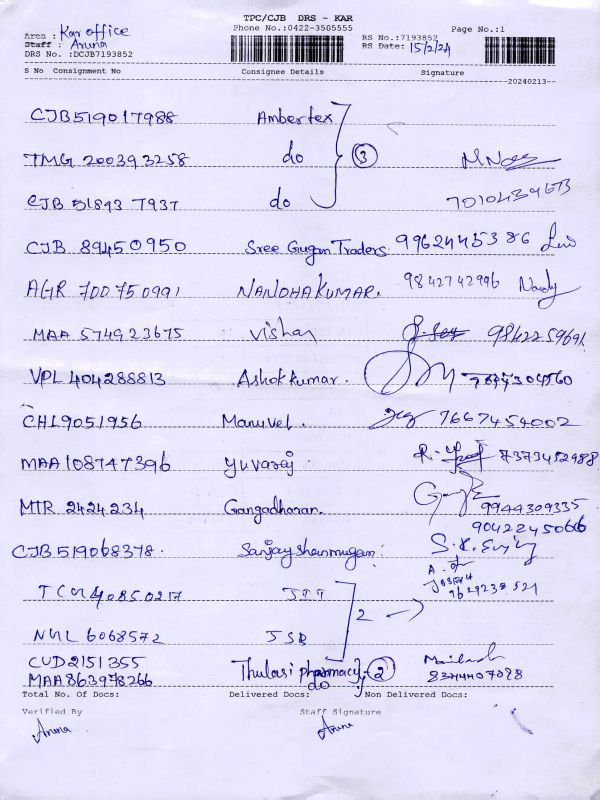 TPC/CJB DRS - KAR
Phone No.:0422-3505555 Page No.:1
Area : Kar office RS No.:7193852
Staff : Aruna RS Date: 15/2/24
DRS No. :DCJB7193852
S No Consignment No Consignee Details Signature
20240213
CJB519017988 Ambertex
TMG 200393258 do 3
CJB 518437937 do 7010439673
CJB 89450950 Sree Gugan Traders 9962445386
AGR 700750991 NANDHAKUMAR. 9842742996 Nandy
MAA 574923675 Vishan 9842259691
VPL 404288813 Ashokkumar.
CHL9051956 Manuvel. 7667454002
MAA108747396 Yuvaraj 7373452988
MTR 2424234 Gangadharan. 9944309335
9042245066
CJB519068378. Sanjayshanmugam
TCM40850217 2
NHL6068572 JSR
CUD2151355 Thulasi pharmacy 2
MAA863978266 do 8344407098
Total No. Of Docs: Delivered Docs: Non Delivered Docs:
Verified By Staff Signature
Aruna Aruna